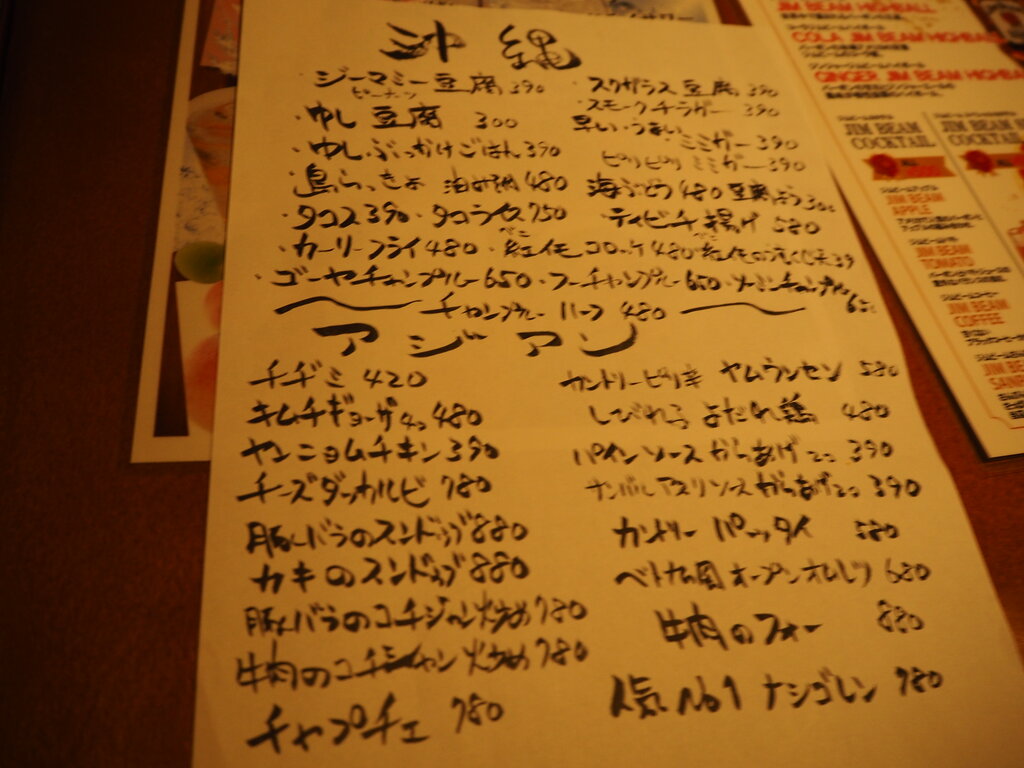 沖縄
・ジーマミー豆腐 390
ピーナッツ
・スクガラス豆腐 390
・ゆし豆腐 300
・スモークチラガー 390
早い・うまい ミミガー 390
・ゆしぶっかけごはん 390
ピリピリミミガー 390
・島らっきょ 480
海ぶどう 480 豆腐よう 300
・タコス 390 ・タコライス 750
・テイビチ揚げ 580
・カーリーフライ 480 ・紅イモコロッケ 480
べに
・ゴーヤチャンプルー 650 ・フーチャンプルー 650 ・ソーミンチャンプルー 650
チャンプルーハーフ 480
アジアン
チヂミ 420
キムチギョーザ 4コ 480
ヤンニョムチキン 390
チーズダッカルビ 780
豚バラのスンドゥブ 880
カキのスンドゥブ 880
豚バラのコチジャン炒め 780
牛肉のコチジャン炒め 780
チャプチェ 780
カントリーピリ辛 ヤムウンセン 580
しびれる よだれ鶏 480
パインソースからあげ 2コ 390
ナンパルプリソースからあげ 2コ 390
カントリー パッタイ 580
ベトナム風オープンオムレツ 680
牛肉のフォー 880
人気No1 ナシゴレン 780
JIM BEAM HIGHBALL
COLA JIM BEAM HIGHBA
GINGER JIM BEAM HIGHBA
JIM BEAM
COCKTAIL
JIM BEAM
COCKTAIL
JIM BEAM
APPLE
JIM BEAM
TOMATO
JIM BEAM
COFFEE